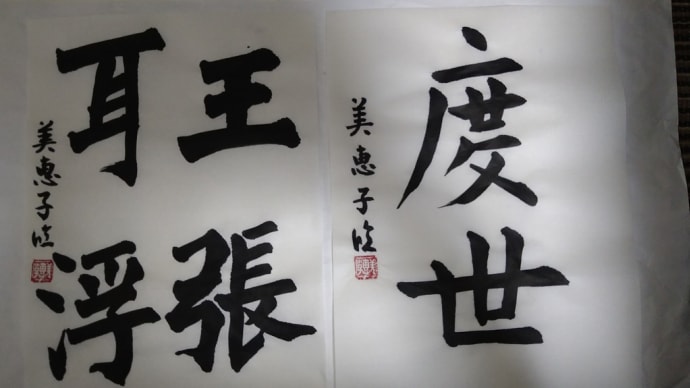 度世
美恵子臨
王張
耳浮
美恵子臨